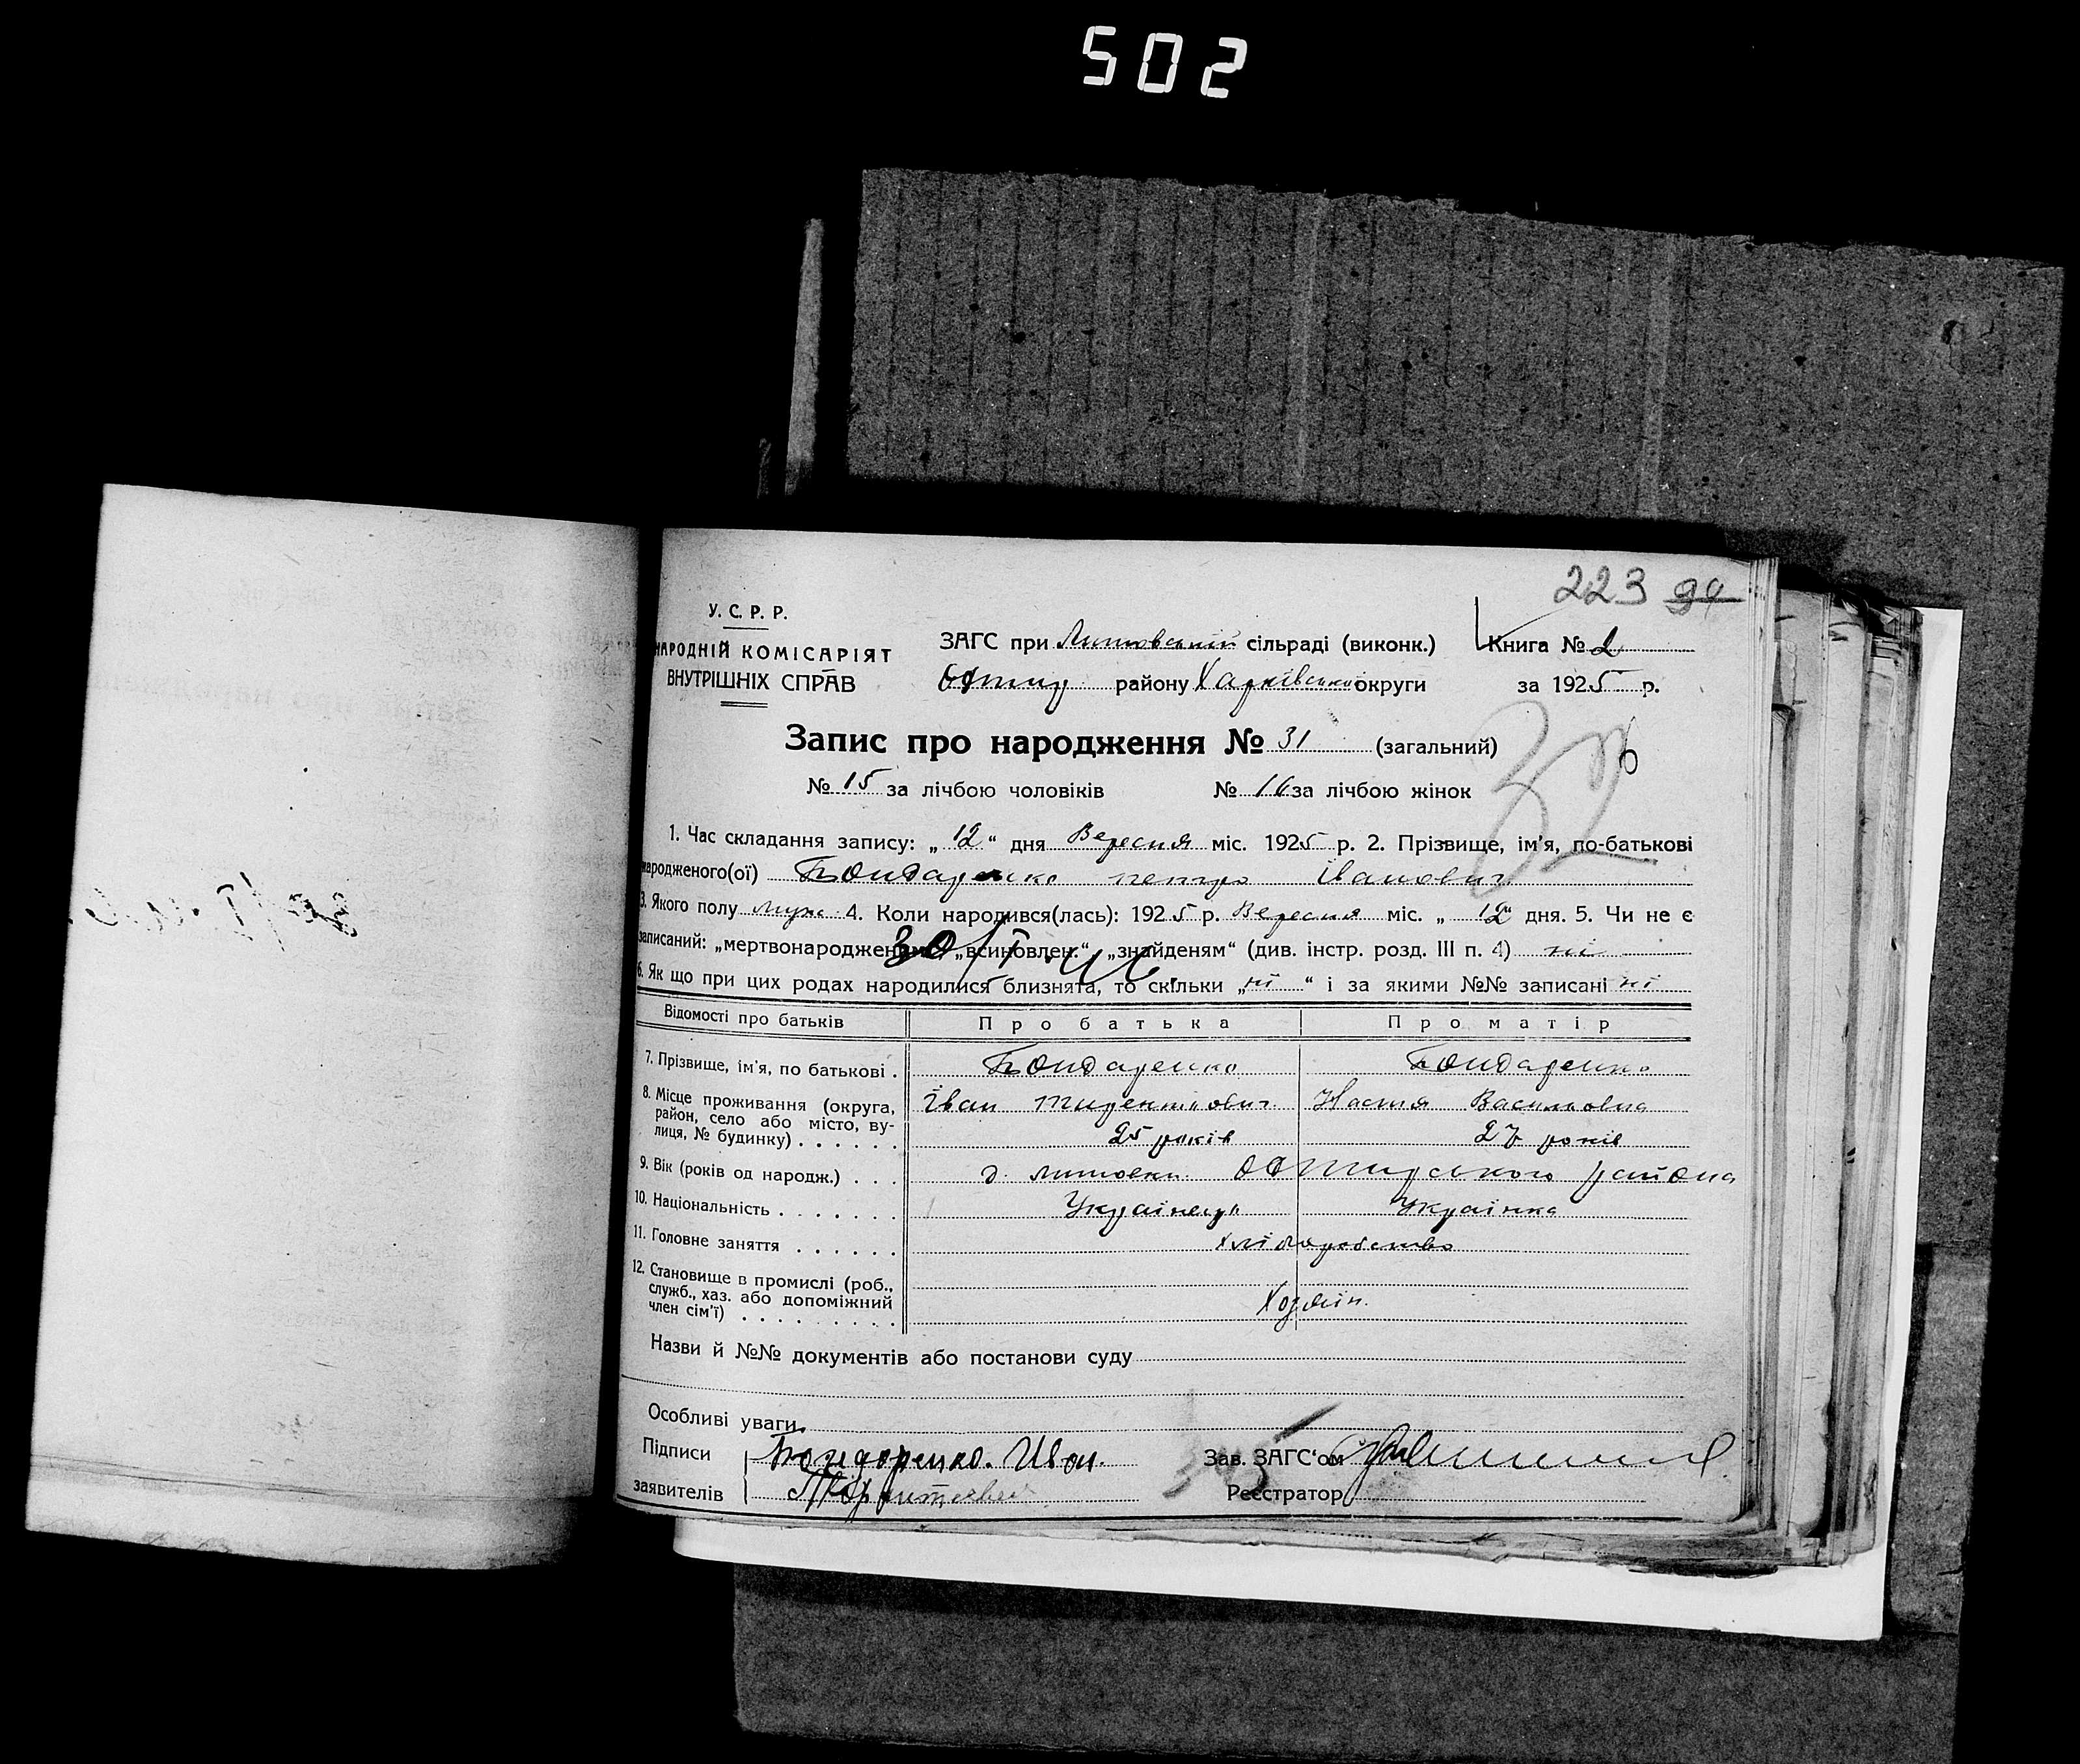 502
223 94
У. С. Р. Р.
НАРОДНІЙ КОМІСАРІЯТ
ВНУТРІШНІХ СПРАВ
ЗАГС при Литовській сільраді (виконк.)
району Харківської округи
Книга № 2
за 1925 р.
32
Запис про народження № 31 (загальний)
№ 15 за лічбою чоловіків № 16 за лічбою жінок
1. Час складання запису: „ 12 “ дня Вересня міс. 1925 р. 2. Прізвище, ім'я, по-батькові
народженого(ої) Бондаренко петро Іванович
3. Якого полу муж 4. Коли народився(лась): 1925 р. Вересня міс. „ 12 “ дня. 5. Чи не є
записаний: „мертвонародженим“, „всиновлен.“ „знайденям“ (див. інстр. розд. III п. 4) ні
6. Як що при цих родах народилися близнята, то скільки „ні“ і за якими №№ записані ні
Відомості про батьків Про батька Про матір
7. Прізвище, ім'я, по батькові . Бондаренко Бондаренко
8. Місце проживання (округа, Іван Настя Василовна
район, село або місто, ву-
лиця, № будинку) . . . . . . 25 років 27 років
9. Вік (років од народж.) . . . района
10. Національність . . . . . . . Українець Українка
11. Головне заняття . . . . . . хліборобство
12. Становище в промислі (роб.,
служб., хаз. або допоміжний Хозяїн.
член сім'ї) . . . . . . . . .
Назви й №№ документів або постанови суду
Особливі уваги
Підписи Бондоренко. Иван. Зав. ЗАГС'ом
заявителів Реєстратор